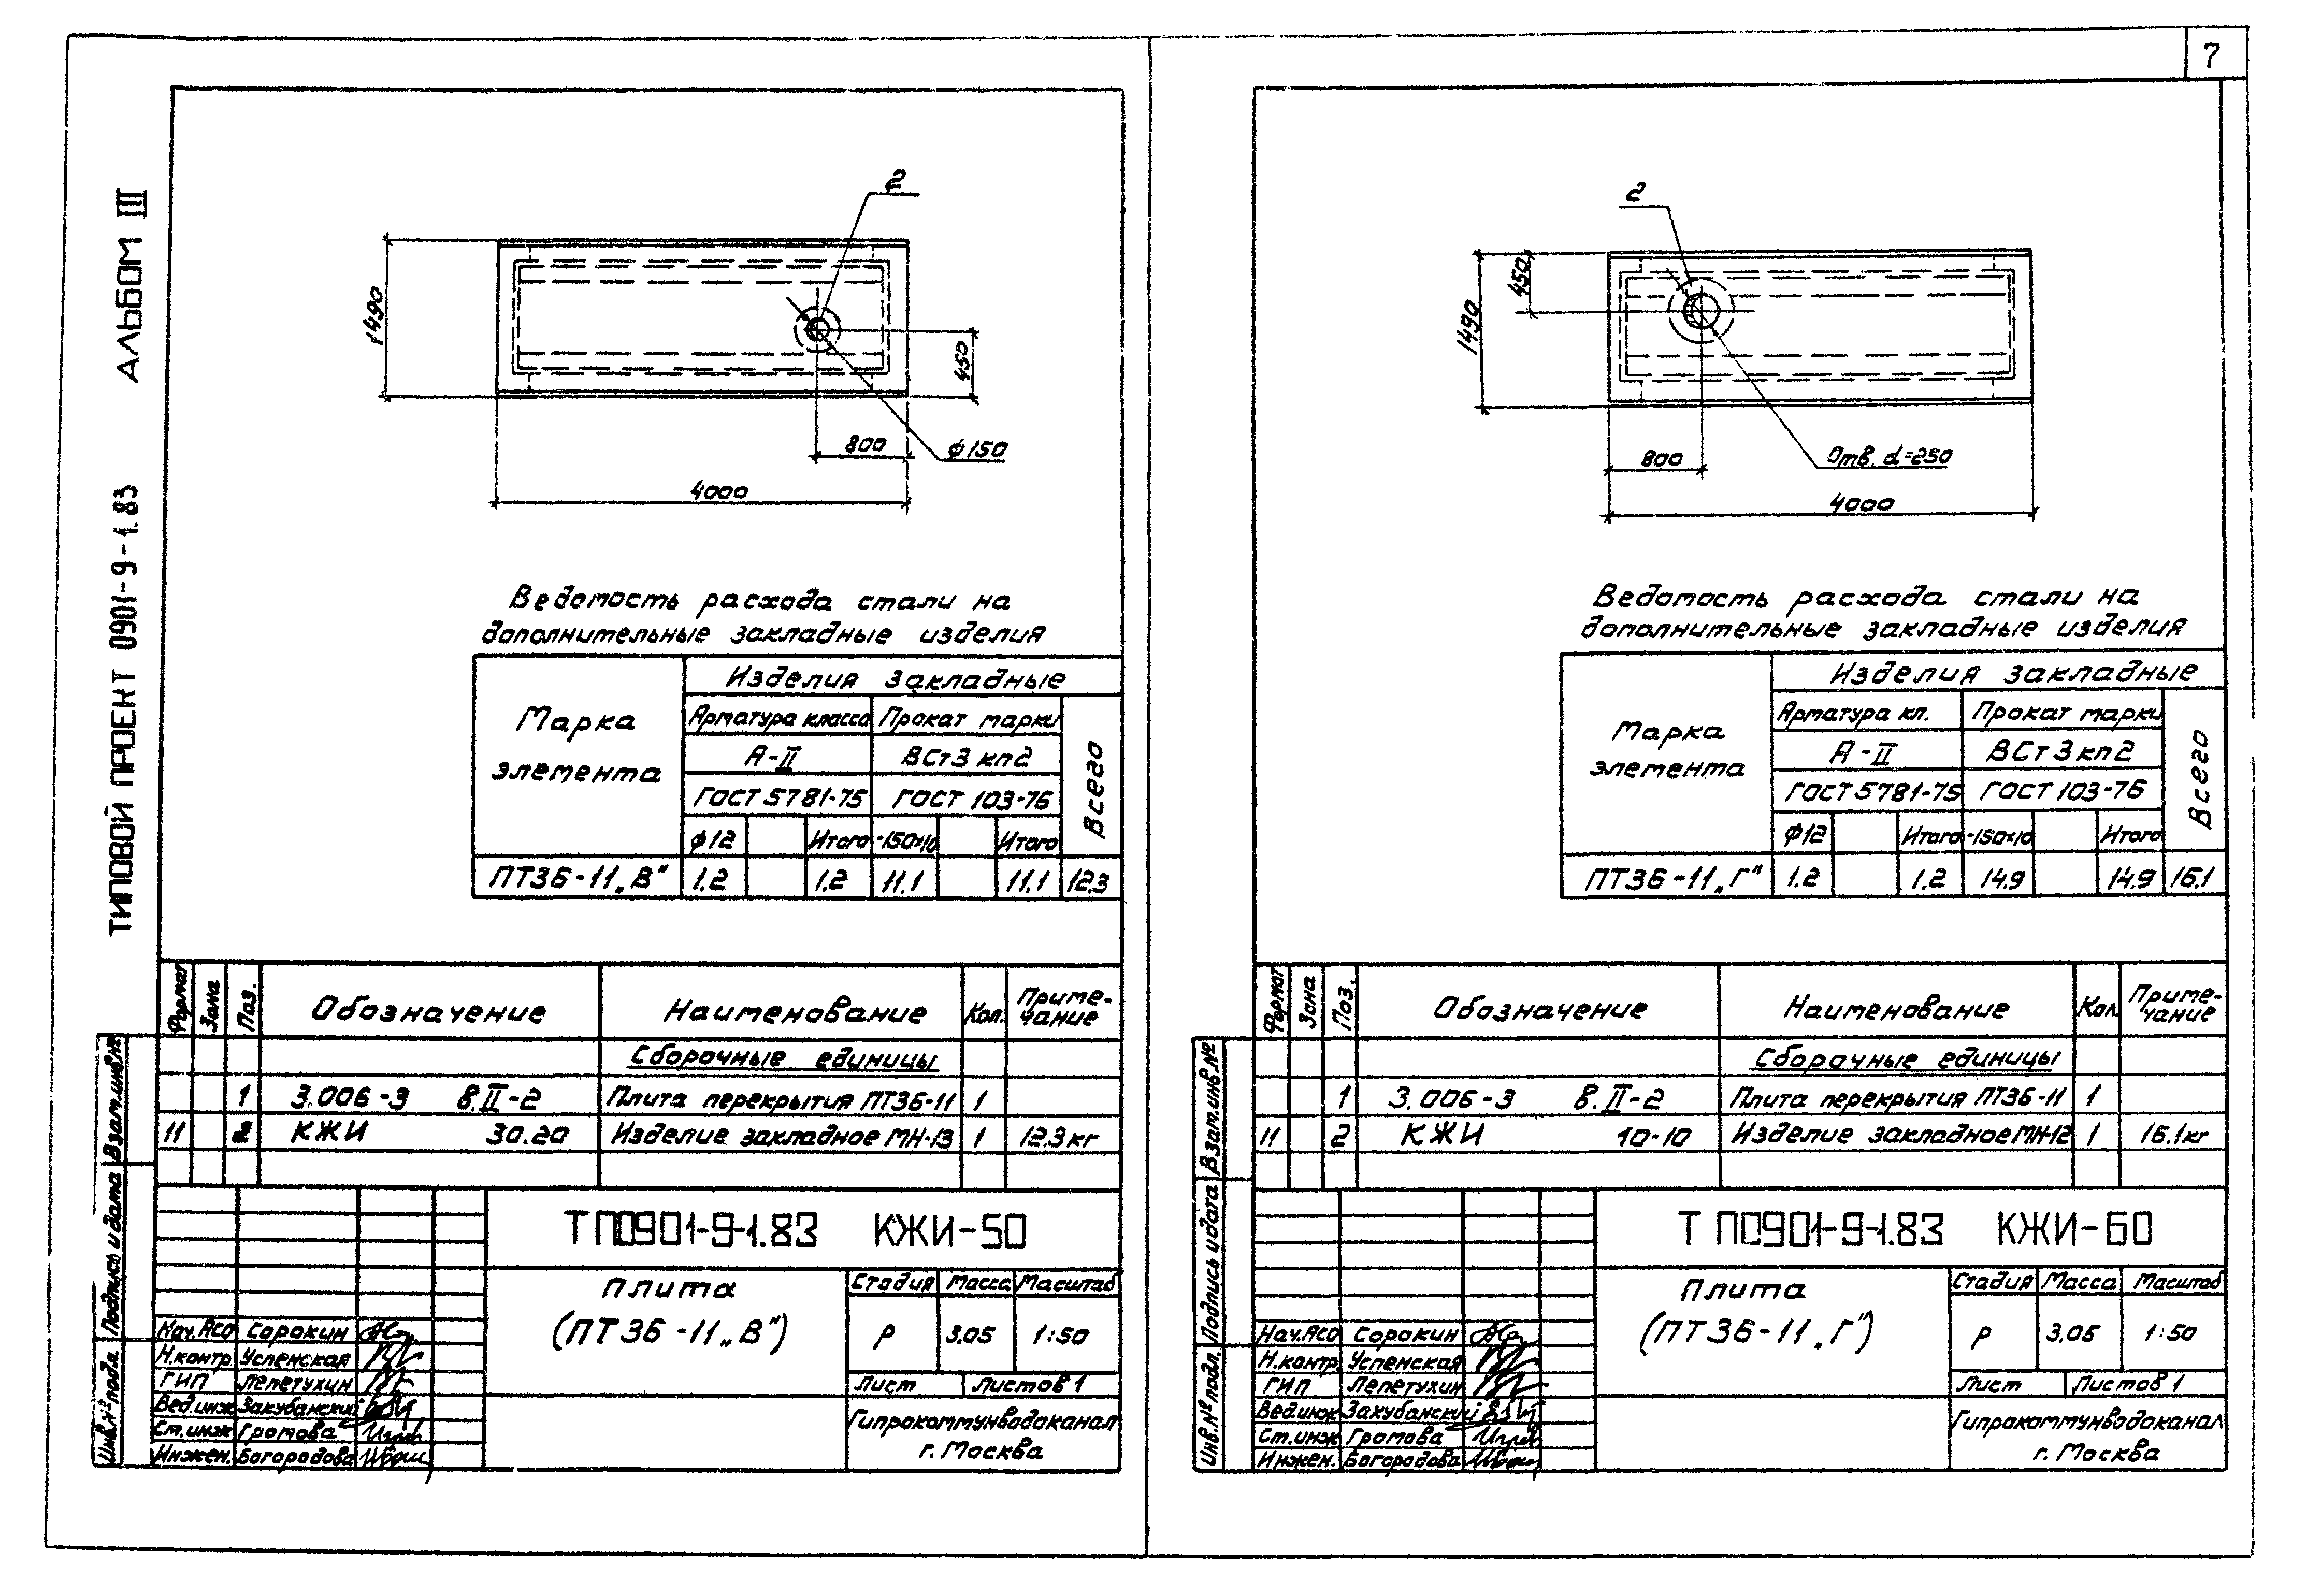 7
ТИПОВОЙ ПРОЕКТ 0901-9-1.83 АЛЬБОМ III
2
1490
450
800
ф150
4000
Ведомость расхода стали на
дополнительные закладные изделия
Марка элемента
Изделия закладные
Арматура класса Прокат марки Всего
А-II ВСт3кп2
ГОСТ 5781-75 ГОСТ 103-76
ф12 Итого -150×10 Итого
ПТ36-11„В" 1.2 1.2 11.1 11.1 12.3
Формат Зона Поз. Обозначение Наименование Кол. Примечание
Сборочные единицы
1 3.006-3 в.II-2 Плита перекрытия ПТ36-11 1
11 2 КЖИ 30.20 Изделие закладное МН-13 1 12.3кг
Взам.инв.№
Подпись и дата
Инв.№подл.
ТП0901-9-1.83 КЖИ-50
Плита
(ПТ36-11„В")
Стадия Масса Масштаб
Р 3.05 1:50
Лист Листов 1
Гипрокоммунводоканал
г. Москва
Нач.АСО Сорокин
Н.контр. Успенская
ГИП Лепетухин
Вед.инж Закубанский
Ст.инж Громова
Инжен. Богородова
2
450
1490
800
Отв. d=250
4000
Ведомость расхода стали на
дополнительные закладные изделия
Марка элемента
Изделия закладные
Арматура кл. Прокат марки Всего
А-II ВСт3кп2
ГОСТ 5781-75 ГОСТ 103-76
ф12 Итого -150×10 Итого
ПТ36-11„Г" 1.2 1.2 14.9 14.9 16.1
Формат Зона Поз. Обозначение Наименование Кол. Примечание
Сборочные единицы
1 3.006-3 в.II-2 Плита перекрытия ПТ36-11 1
11 2 КЖИ 10-10 Изделие закладное МН-12 1 16.1кг
Взам.инв.№
Подпись и дата
Инв.№подл.
ТП0901-9-1.83 КЖИ-60
Плита
(ПТ36-11„Г")
Стадия Масса Масштаб
Р 3.05 1:50
Лист Листов 1
Гипрокоммунводоканал
г. Москва
Нач.АСО Сорокин
Н.контр. Успенская
ГИП Лепетухин
Вед.инж Закубанский
Ст.инж Громова
Инжен. Богородова